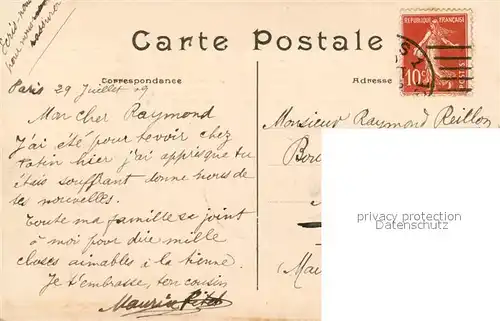 Ecris-nous
pour nous
rassurer
Carte Postale
Correspondance
Adresse
REPUBLIQUE FRANÇAISE
10c
POSTES
Paris 29 Juillet 09
Mon cher Raymond
J'ai été pour te voir chez
tatin hier j'ai appris que tu
étais souffrant donne nous de
tes nouvelles.
Toute ma famille se joint
à moi pour dire mille
choses aimables à la tienne.
Je t'embrasse, ton cousin
Maurice
Monsieur Raymond Reillon
privacy protection
Datenschutz